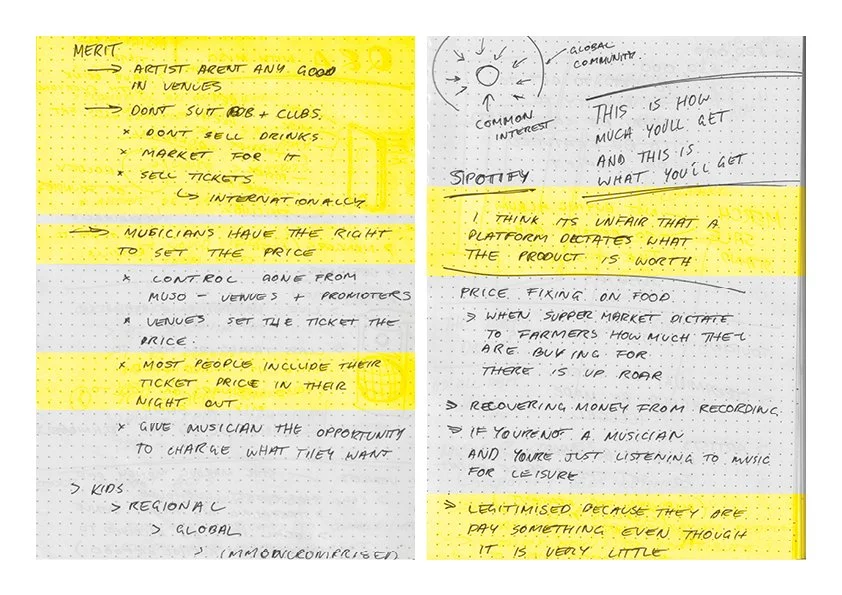 MERIT
→ ARTIST ARENT ANY GOOD
IN VENUES
→ DONT SUIT PUB + CLUBS.
× DONT SELL DRINKS
× MARKET FOR IT
× SELL TICKETS
↳ INTERNATIONALLY
→ MUSICIANS HAVE THE RIGHT
TO SET THE PRICE
× CONTROL GONE FROM
MUSO - VENUES + PROMOTERS
× VENUES SET THE TICKET THE
PRICE.
× MOST PEOPLE INCLUDE THEIR
TICKET PRICE IN THEIR
NIGHT OUT
× GIVE MUSICIAN THE OPPORTUNITY
TO CHARGE WHAT THEY WANT
> KIDS
> REGIONAL
> GLOBAL
> IMMOONCROMPRISED
GLOBAL
COMMUNITY.
COMMON
INTEREST
THIS IS HOW
MUCH YOULL GET
AND THIS IS
WHAT YOU'LL GET
SPOTIFY
I THINK ITS UNFAIR THAT A
PLATFORM DICTATES WHAT
THE PRODUCT IS WORTH
PRICE FIXING ON FOOD
> WHEN SUPPER MARKET DICTATE
TO FARMERS HOW MUCH THEY
ARE BUYING FOR
THERE IS UP ROAR
> RECOVERING MONEY FROM RECORDING
> IF YOURE NOT A MUSICIAN
AND YOURE JUST LISTENING TO MUSIC
FOR LEISURE
> LEGITIMISED BECAUSE THEY ARE
PAY SOMETHING EVEN THOUGH
IT IS VERY LITTLE